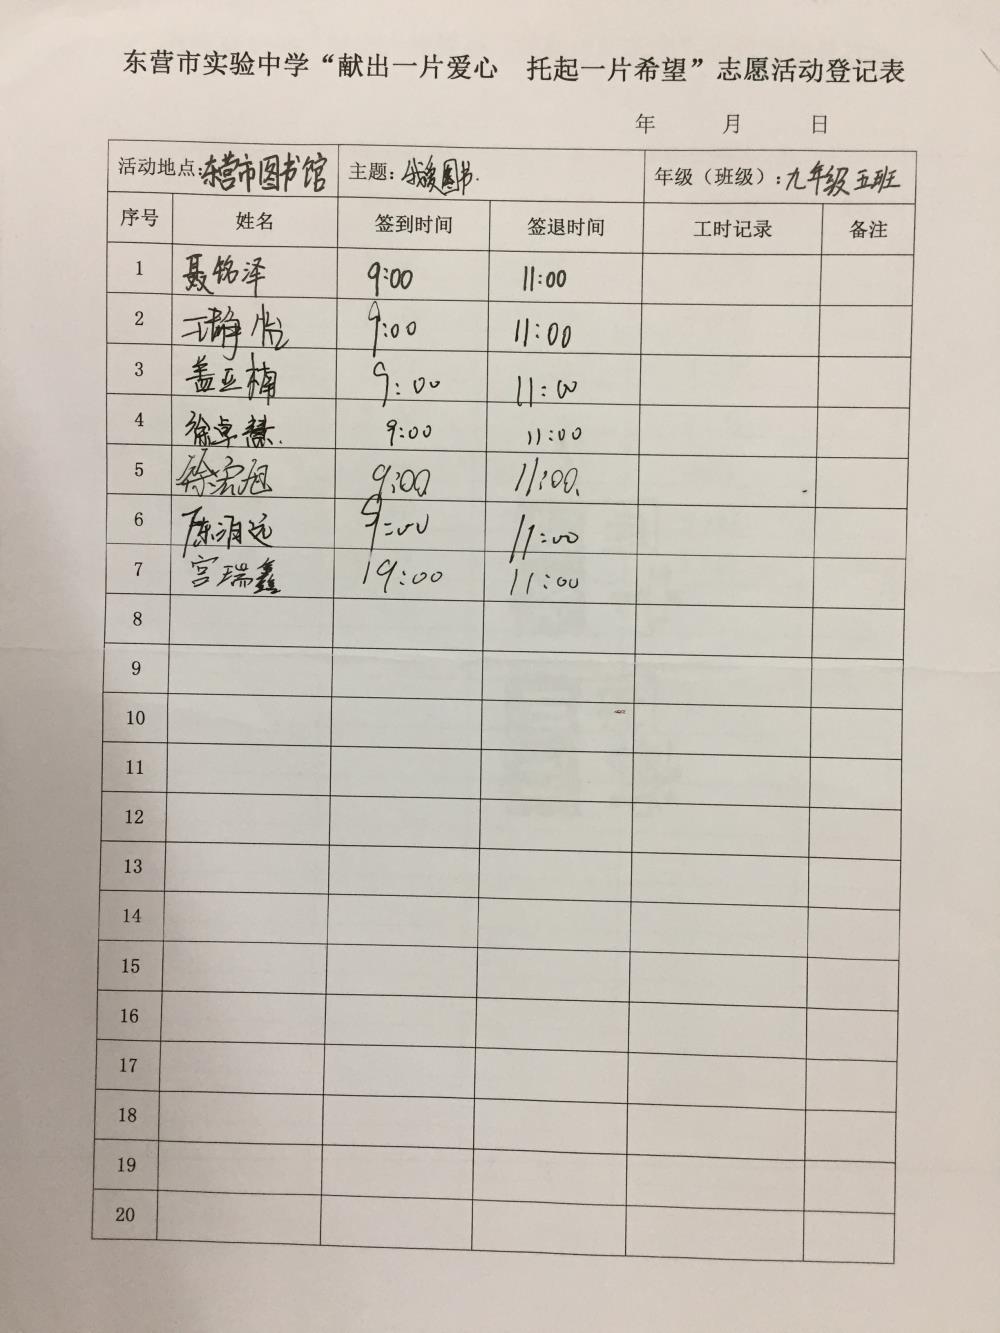 东营市实验中学“献出一片爱心 托起一片希望”志愿活动登记表
年 月 日
活动地点:东营市图书馆 主题: 图书. 年级（班级）:九年级五班
序号 姓名 签到时间 签退时间 工时记录 备注
1 聂铭泽 9:00 11:00
2 王静怡 9:00 11:00
3 盖亚楠 9:00 11:00
4 徐卓慧. 9:00 11:00
5 徐 旭 9:00 11:00
6 陈 远 9:00 11:00
7 宫瑞鑫 19:00 11:00
8
9
10
11
12
13
14
15
16
17
18
19
20